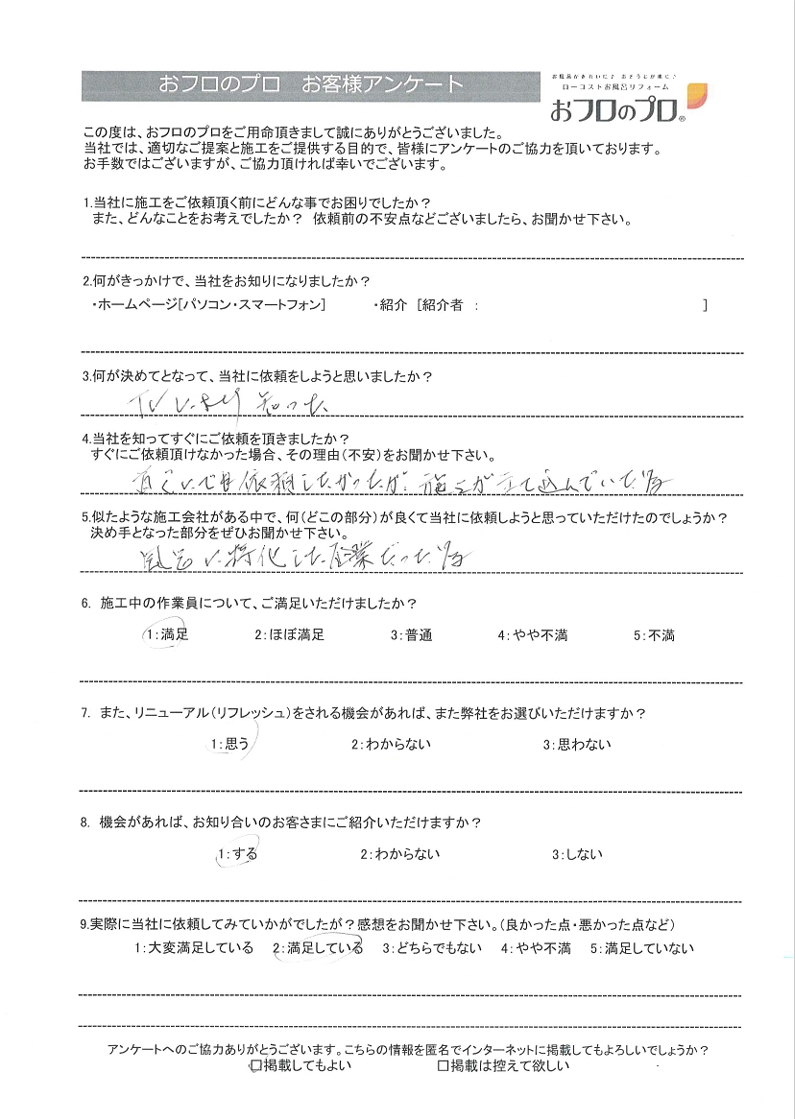 おフロのプロ お客様アンケート
お風呂がきれいに♪ おそうじが楽に♪
ローコストお風呂リフォーム
おフロのプロ®
この度は、おフロのプロをご用命頂きまして誠にありがとうございました。
当社では、適切なご提案と施工をご提供する目的で、皆様にアンケートのご協力を頂いております。
お手数ではございますが、ご協力頂ければ幸いでございます。
1.当社に施工をご依頼頂く前にどんな事でお困りでしたか？
また、どんなことをお考えでしたか？ 依頼前の不安点などございましたら、お聞かせ下さい。
2.何がきっかけで、当社をお知りになりましたか？
・ホームページ[パソコン・スマートフォン] ・紹介 [紹介者 : ]
3.何が決めてとなって、当社に依頼をしようと思いましたか？
TVにより知った
4.当社を知ってすぐにご依頼を頂きましたか？
すぐにご依頼頂けなかった場合、その理由(不安)をお聞かせ下さい。
直ぐにでも依頼したかったが、施工が立て込んでいた為
5.似たような施工会社がある中で、何(どこの部分)が良くて当社に依頼しようと思っていただけたのでしょうか？
決め手となった部分をぜひお聞かせ下さい。
風呂に特化した企業だった為
6. 施工中の作業員について、ご満足いただけましたか？
1:満足 2:ほぼ満足 3:普通 4:やや不満 5:不満
7. また、リニューアル(リフレッシュ)をされる機会があれば、また弊社をお選びいただけますか？
1:思う 2:わからない 3:思わない
8. 機会があれば、お知り合いのお客さまにご紹介いただけますか？
1:する 2:わからない 3:しない
9.実際に当社に依頼してみていかがでしたが？感想をお聞かせ下さい。(良かった点・悪かった点など)
1:大変満足している 2:満足している 3:どちらでもない 4:やや不満 5:満足していない
アンケートへのご協力ありがとうございます。こちらの情報を匿名でインターネットに掲載してもよろしいでしょうか？
□掲載してもよい □掲載は控えて欲しい